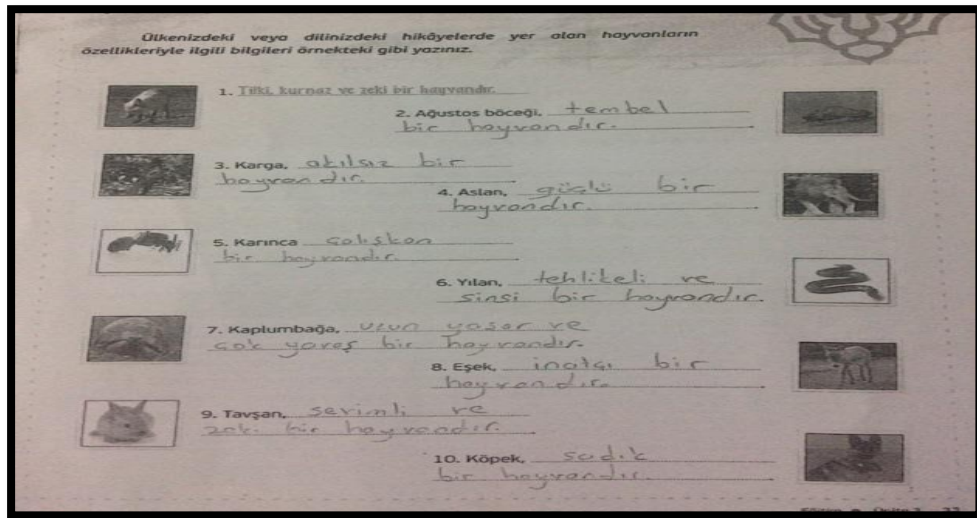 Ülkenizdeki veya dilinizdeki hikâyelerde yer alan hayvanların
özellikleriyle ilgili bilgileri örnekteki gibi yazınız.
1. Tilki, kurnaz ve zeki bir hayvandır.
2. Ağustos böceği, tembel
bir hayvandır.
3. Karga, akılsız bir
hayvandır.
4. Aslan, güçlü bir
hayvandır.
5. Karınca çalışkan
bir hayvandır.
6. Yılan, tehlikeli ve
sinsi bir hayvandır.
7. Kaplumbağa, uzun yaşar ve
çok yavaş bir hayvandır.
8. Eşek, inatçı bir
hayvandır.
9. Tavşan, sevimli ve
zeki bir hayvandır.
10. Köpek, sadık
bir hayvandır.